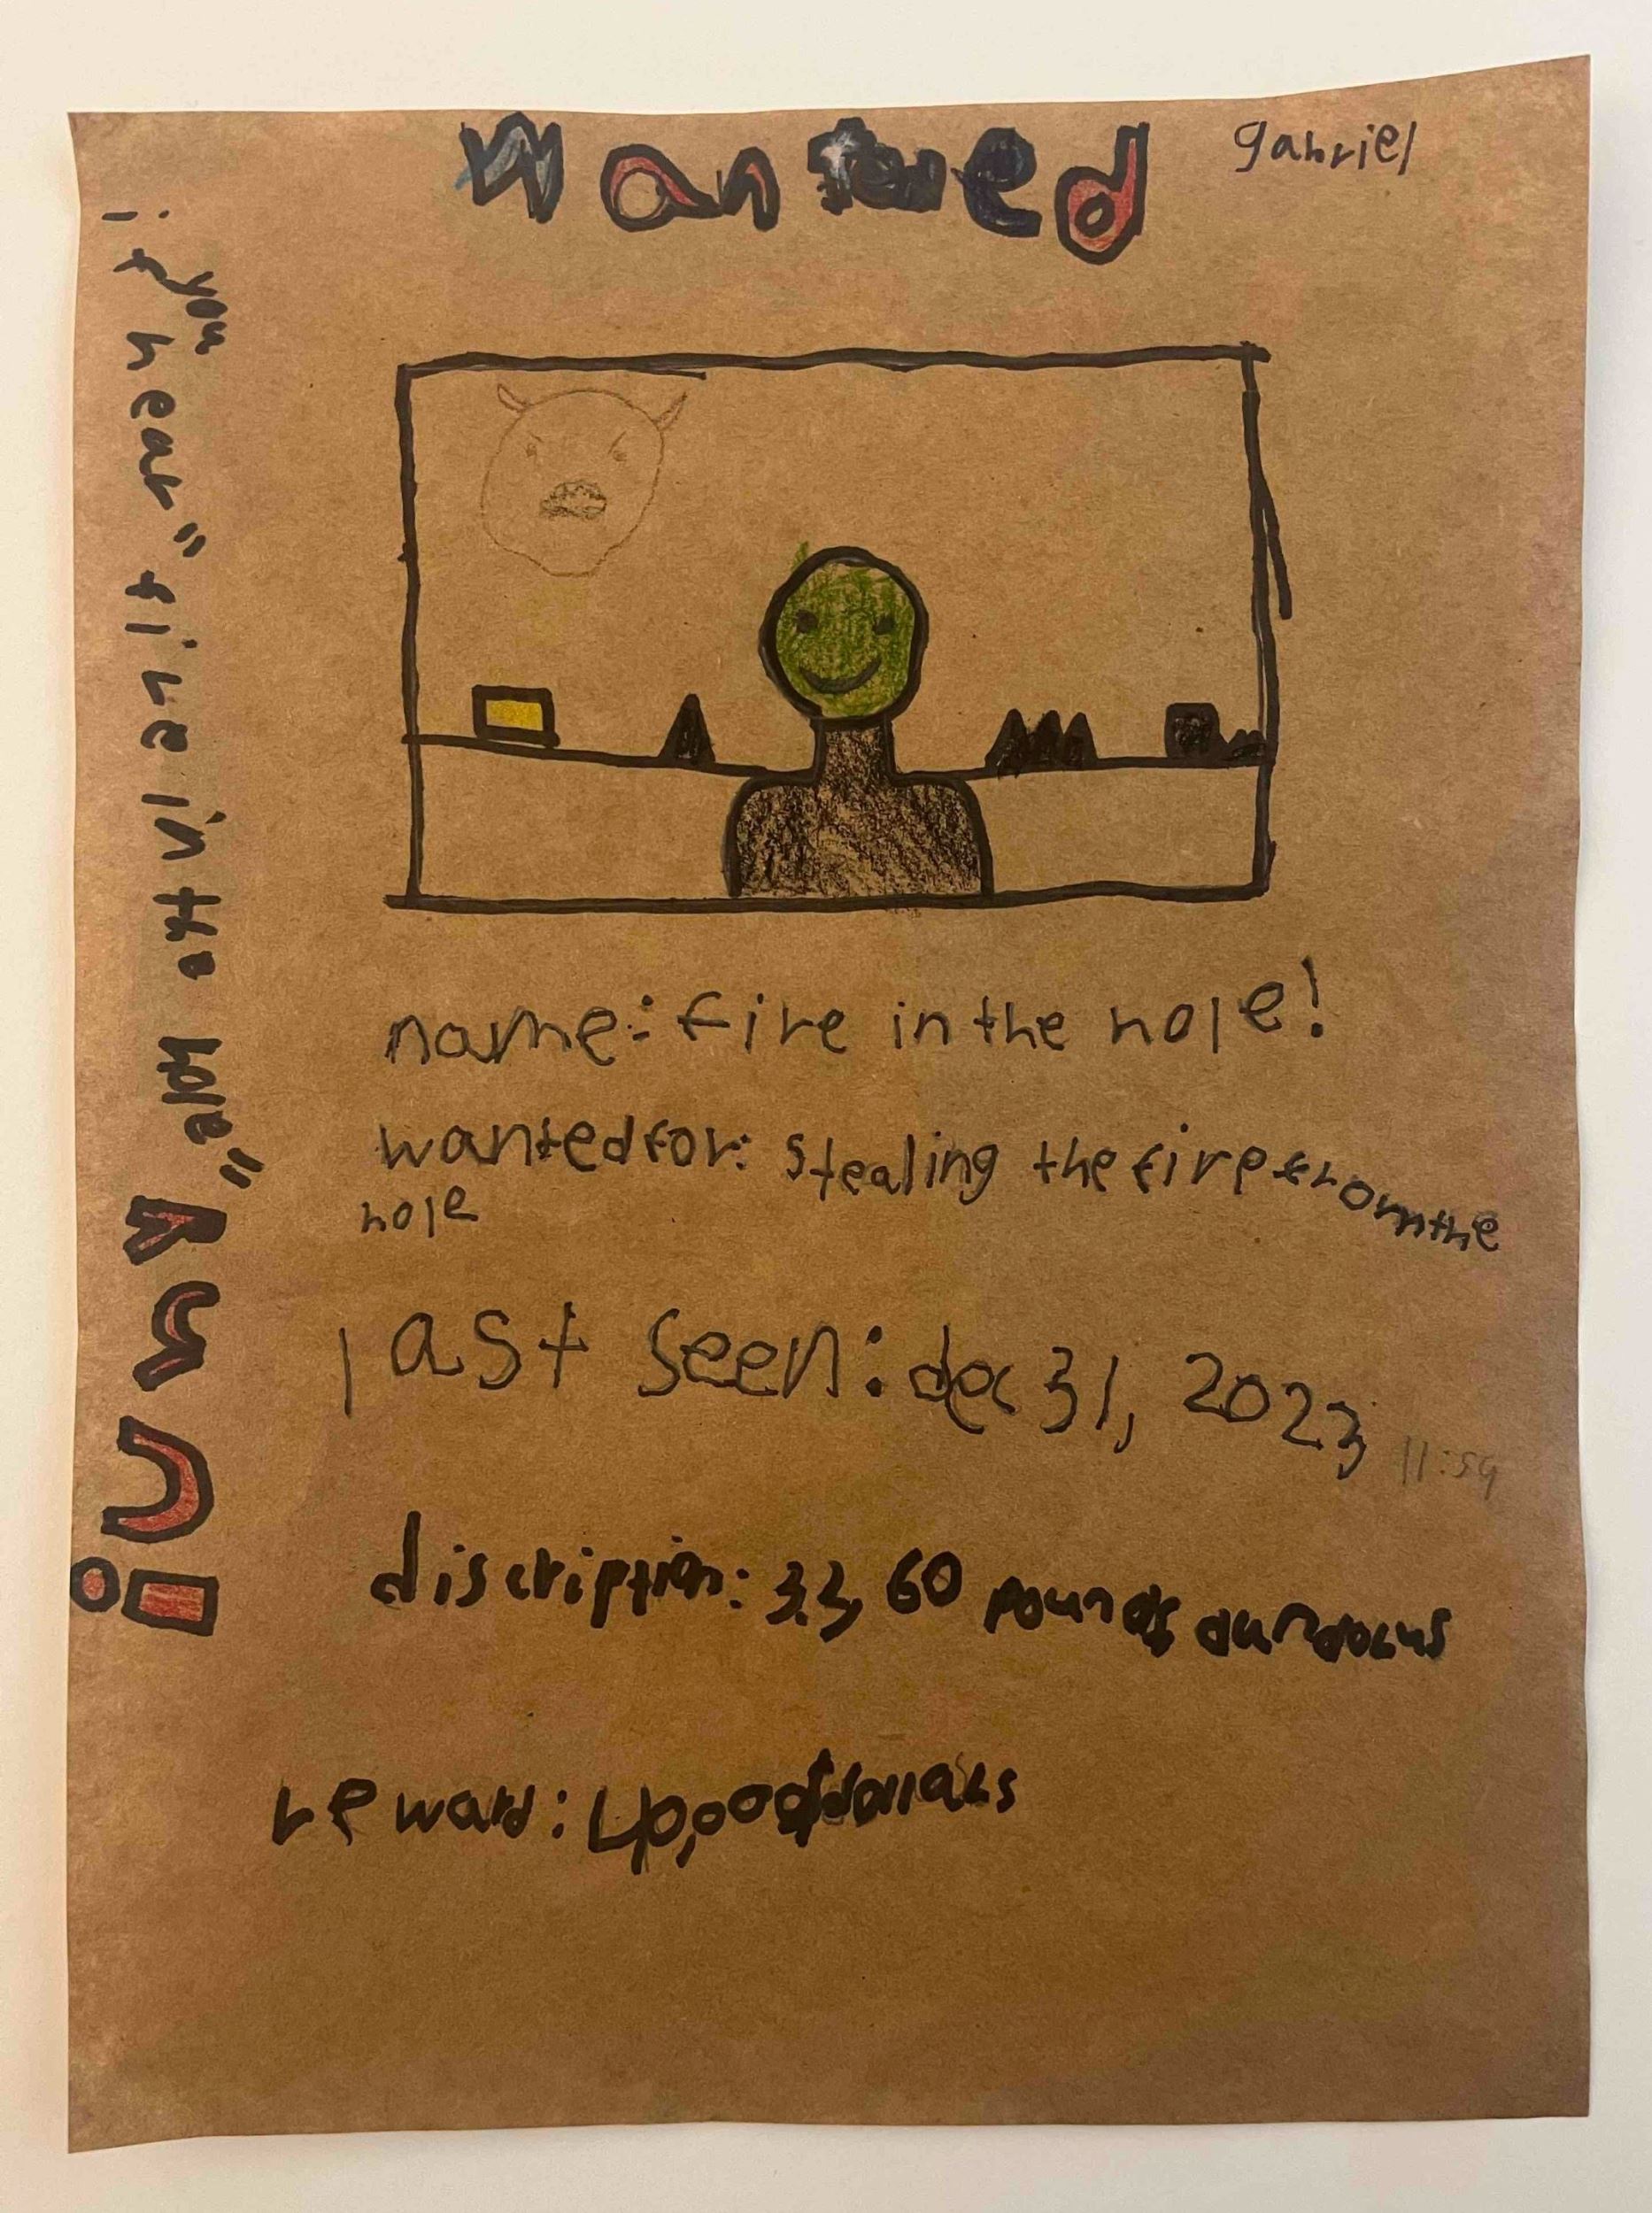 wanted
gabriel
if you hear "fire in the hole" run!
name: fire in the hole!
wanted for: stealing the fire from the
hole
last seen: dec 31, 2023 11:59
discription: 3.3, 60 pounds
reward: 40,000 dollars